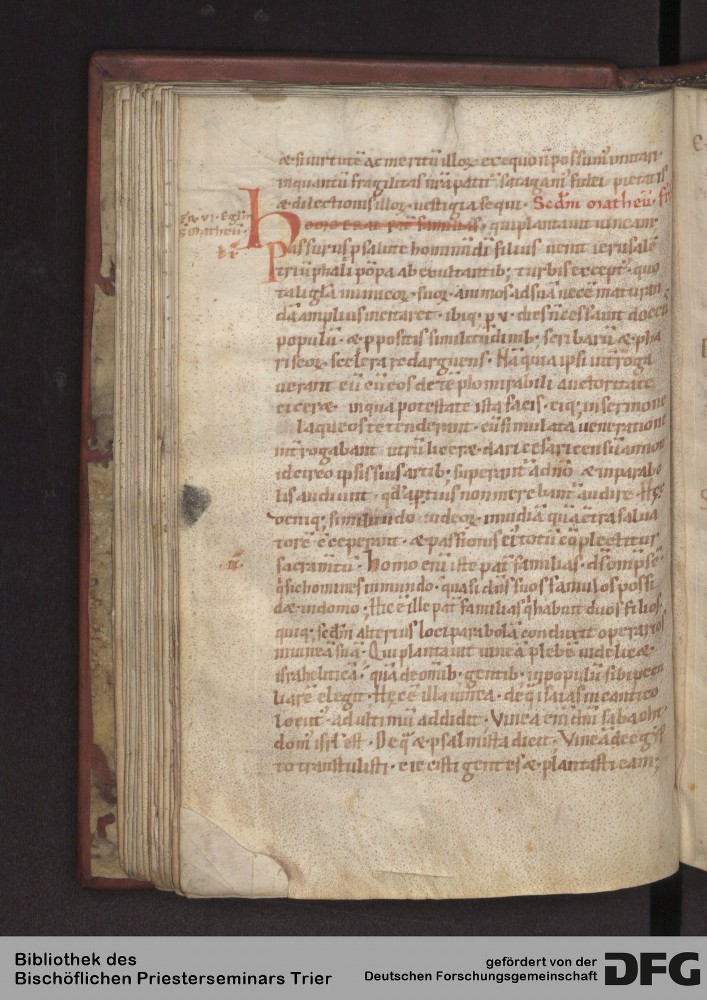 & si uirtute ac meritū illoꝝ exequo n̄ possum' imitari
inquantū fragilitas nr̄a patit᷑ satagam' fidei pietatis
& dilectionis illoꝝ uestigia sequi. Scd̄m matheū.
Homo erat pat̄ familias, qui plantauit uineam.
Passurus p salute hominū di filius uenit ierusalē
triūphali pōpa ab exultantib; turbis except᷑. quo
tali gl̄a inimicoꝝ suoꝝ animos ad suā necē maturan
dā amplius incitaret. ibiq; p v. dies n̄ cessauit docens
populū. & ppositis similitudinib; scribarū & pha
riseoꝝ scelera redarguens. Nā quia ipsi int̄roga
uerant eū eiceos de tēplo mirabili auctoritate
eicer&. in qua potestate ista facis. eiq; in sermone
laqueos tetenderant. cū simulata ueneratione
int̄rogabant utrū lic&. dari cesari censū an non
idcirco ipsis suis artib; superant᷑ a dn̄o & in parabo
lis audiunt. qd̄ aptius non merebant᷑ audire. Hęc
deniq; similitudo iudeoꝝ inuidiā quā c̄tra salua
torē cēperant. & passionis ei' totū cōplectitur
sacram̄tū. Homo eni iste pat̄ familias. ds̄ omps ē.
q̄ sic homines in mundo. quasi dn̄s suos famulos possi
d& in domo; Hic ē ille pat̄ familias q̄ habuit duos filios.
quiq; scd̄m alterius loci parabolā conduxit operarios
in uineā suā. Qui plantauit uineā plebē uidelic&.
israheliticā. quā de omib; gentib; in populū sibi pecu
liarē elegit. Hęc ē illa uinea. de q̄ isaias in cantico
locut'. ad ultimū addidit. Vinea eni dn̄i sabaoth.
dom' isrl̄ est. De q̄ & psalmista dicit. Vineā de egyp
to transtulisti. eiecisti gentes & plantasti eam;
Bibliothek des
Bischöflichen Priesterseminars Trier
gefördert von der
Deutschen Forschungsgemeinschaft
DFG